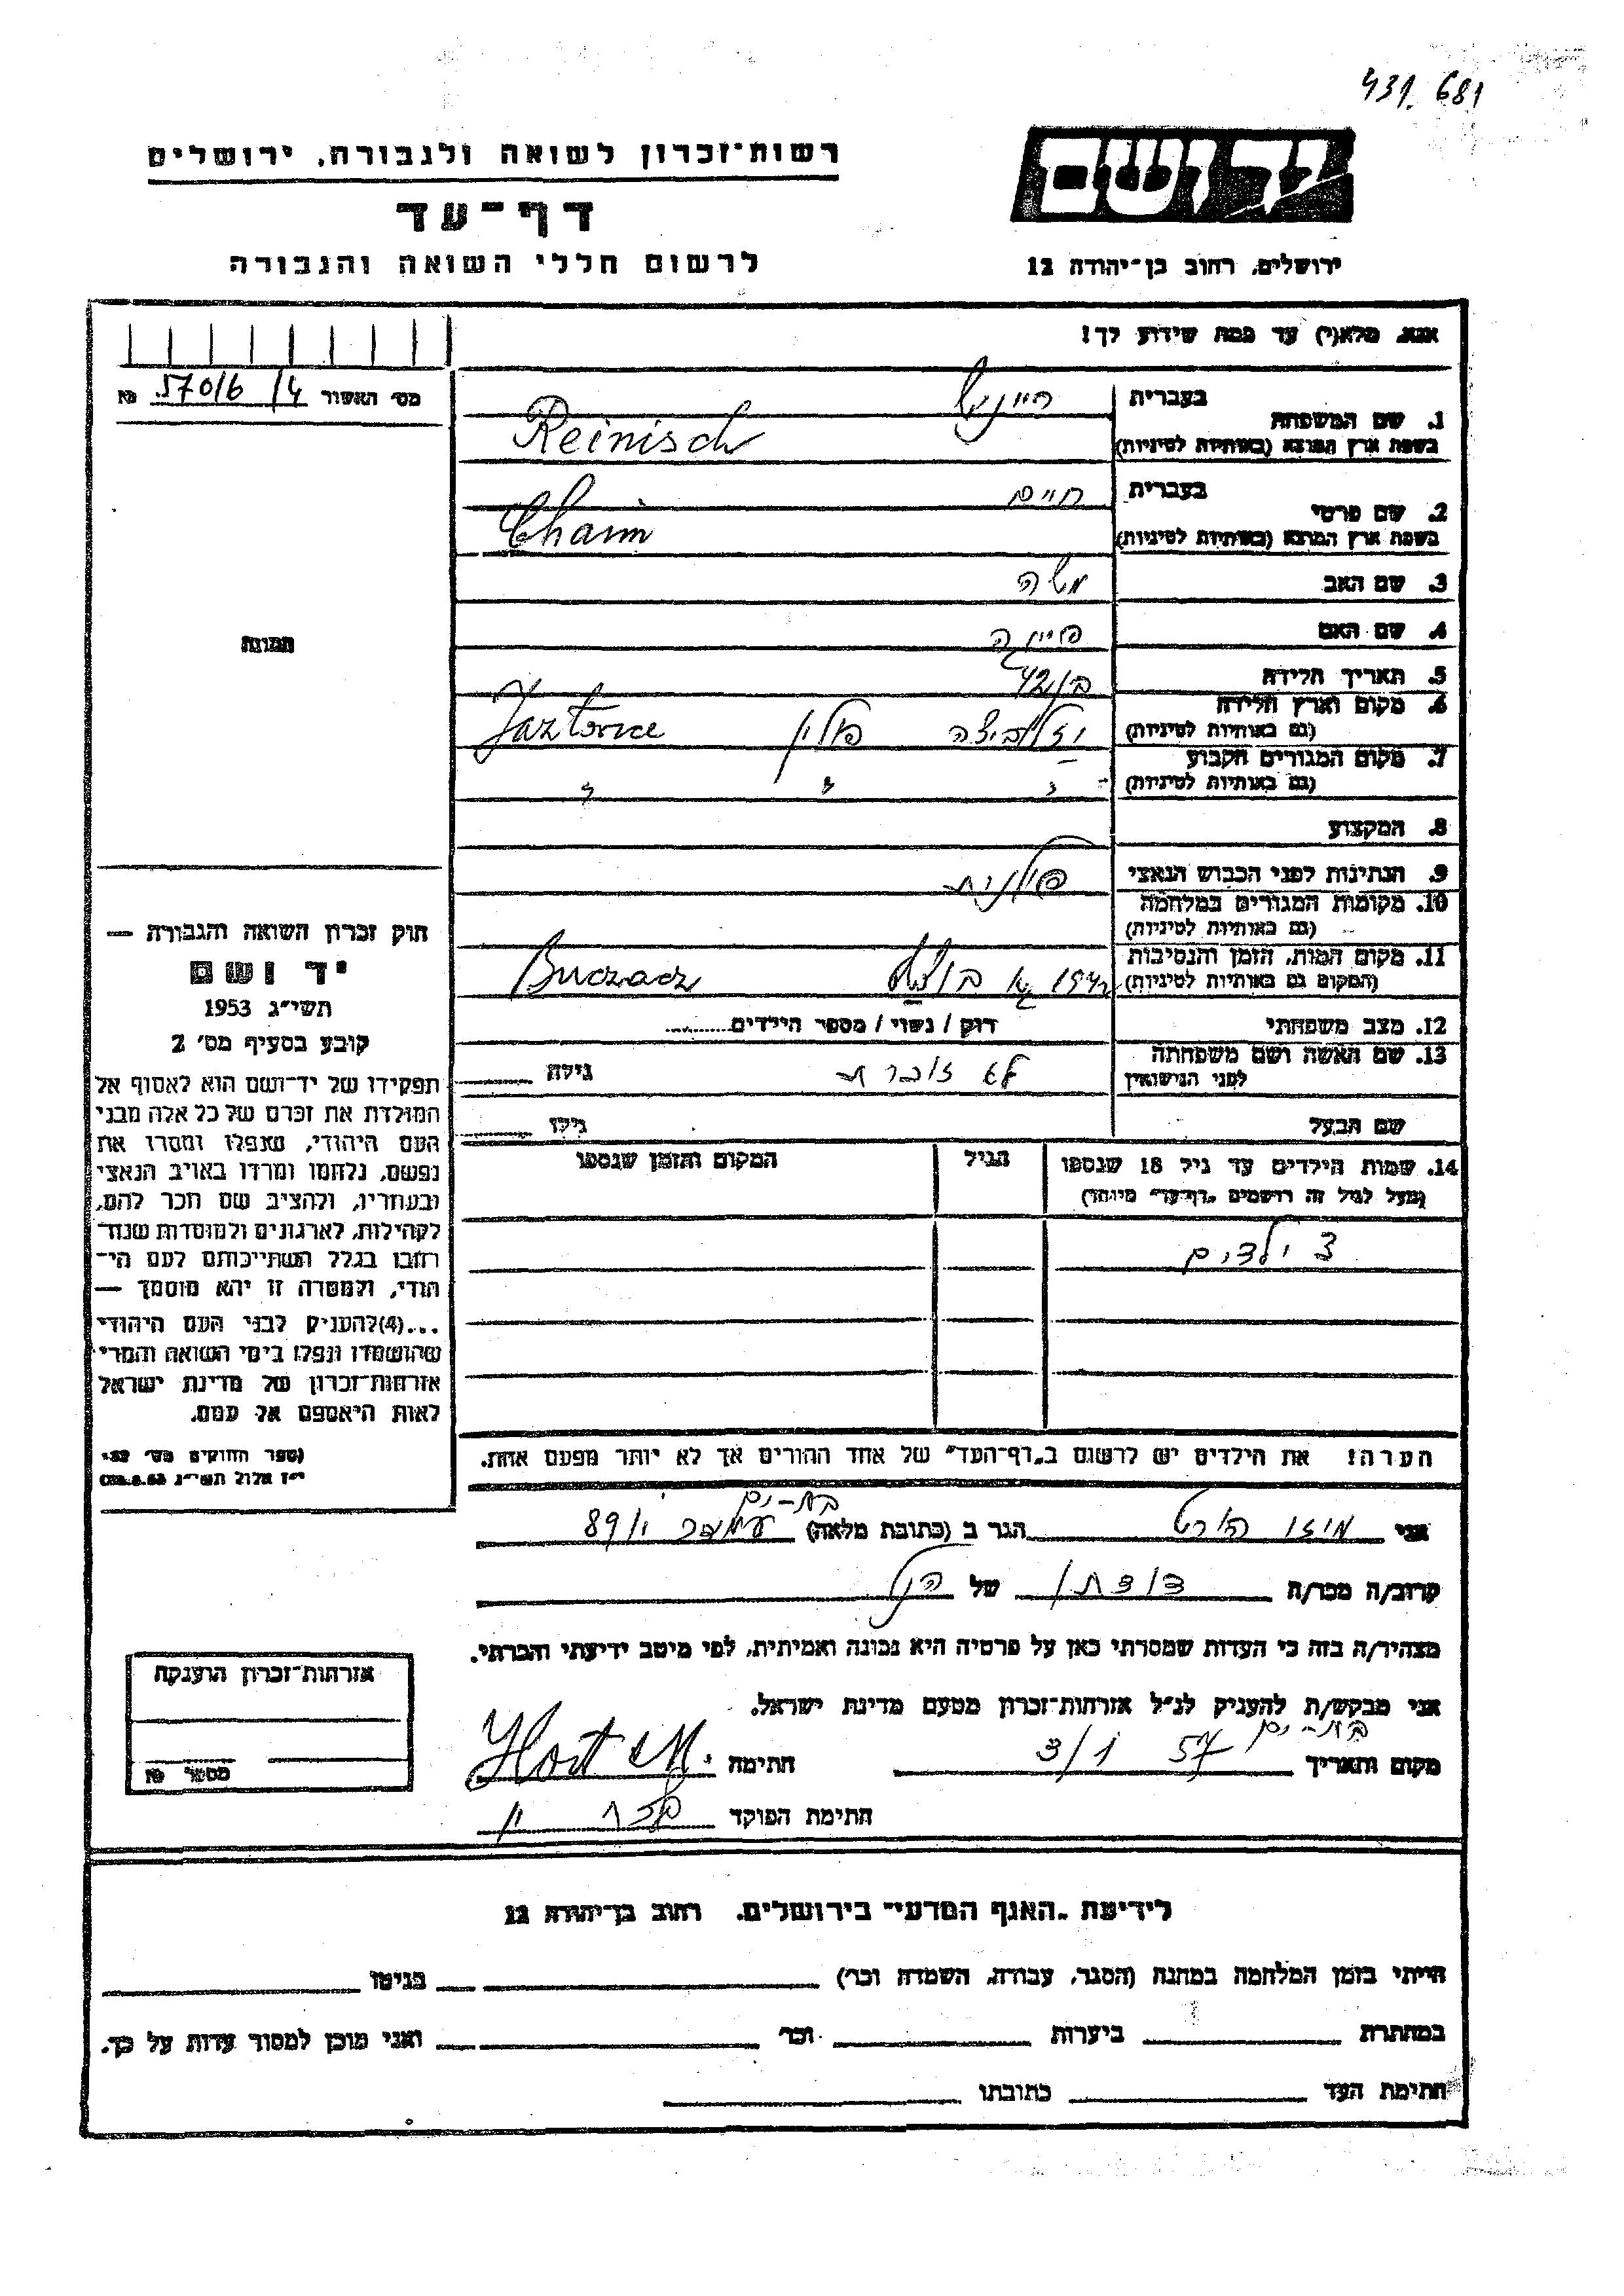 431. 681
רשות־זכרון לשואה ולגבורה, ירושלים
דף־עד
לרשום חללי השואה והגבורה
יד ושם
ירושלים, רחוב בן־יהודה 12
אנא, מלא(י) עד כמה שידוע לך!
מס' האשור 57016/4
1. שם המשפחה בעברית ריינש
בשפת ארץ המוצא (באותיות לטיניות) Reinisch
2. שם פרטי בעברית חיים
בשפת ארץ המוצא (באותיות לטיניות) Chaim
3. שם האב משה
4. שם האם
5. תאריך הלידה בן 42
6. מקום וארץ הלידה פולין
(גם באותיות לטיניות)
7. מקום המגורים הקבוע " " "
(גם באותיות לטיניות)
8. המקצוע
9. הנתינות לפני הכבוש הנאצי פולנית
10. מקומות המגורים במלחמה
(גם באותיות לטיניות)
11. מקום המות, הזמן והנסיבות
(המקום גם באותיות לטיניות) Buczacz
12. מצב משפחתי רוק / נשוי / מספר הילדים
13. שם האשה ושם משפחתה לא זוכרת גילה
לפני הנישואין
שם הבעל גילו
14. שמות הילדים עד גיל 18 שנספו הגיל המקום והזמן שנספו
(מעל לגיל זה רושמים „דף־עד" מיוחד)
ילדים
הערה! את הילדים יש לרשום ב„דף־העד" של אחד ההורים אך לא יותר מפעם אחת.
תמונה
חוק זכרון השואה והגבורה —
יד ושם
תשי"ג 1953
קובע בסעיף מס' 2
תפקידו של יד־ושם הוא לאסוף אל
המולדת את זכרם של כל אלה מבני
העם היהודי, שנפלו ומסרו את
נפשם, נלחמו ומרדו באויב הנאצי
ובעוזריו, ולהציב שם וזכר להם,
לקהילות, לארגונים ולמוסדות שנח־
רבו בגלל השתייכותם לעם הי־
הודי, ולמטרה זו יהא מוסמך —
...(4) להעניק לבני העם היהודי
שהושמדו ונפלו בימי השואה והמרי
אזרחות־זכרון של מדינת ישראל
לאות היאספם אל עמם.
(ספר החוקים מס' 132,
י"ז אלול תשי"ג 28.8.53)
בת־ים
אני הורט הגר ב (כתובת מלאה) 89
קרוב/ה מכר/ה דודתו של הנ"ל
מצהיר/ה בזה כי העדות שמסרתי כאן על פרטיה היא נכונה ואמיתית, לפי מיטב ידיעתי והכרתי.
אני מבקש/ת להעניק לנ"ל אזרחות־זכרון מטעם מדינת ישראל.
בת־ים
מקום ותאריך 3/1 57 חתימה Hort M.
חתימת הפוקד
אזרחות־זכרון הוענקה
מספר
לידיעת „האגף המדעי" בירושלים, רחוב בן־יהודה 12
הייתי בזמן המלחמה במחנה (הסגר, עבודה, השמדה וכו') בגיטו
במחתרת ביערות וכו' ואני מוכן למסור עדות על כך.
חתימת העד כתובתו